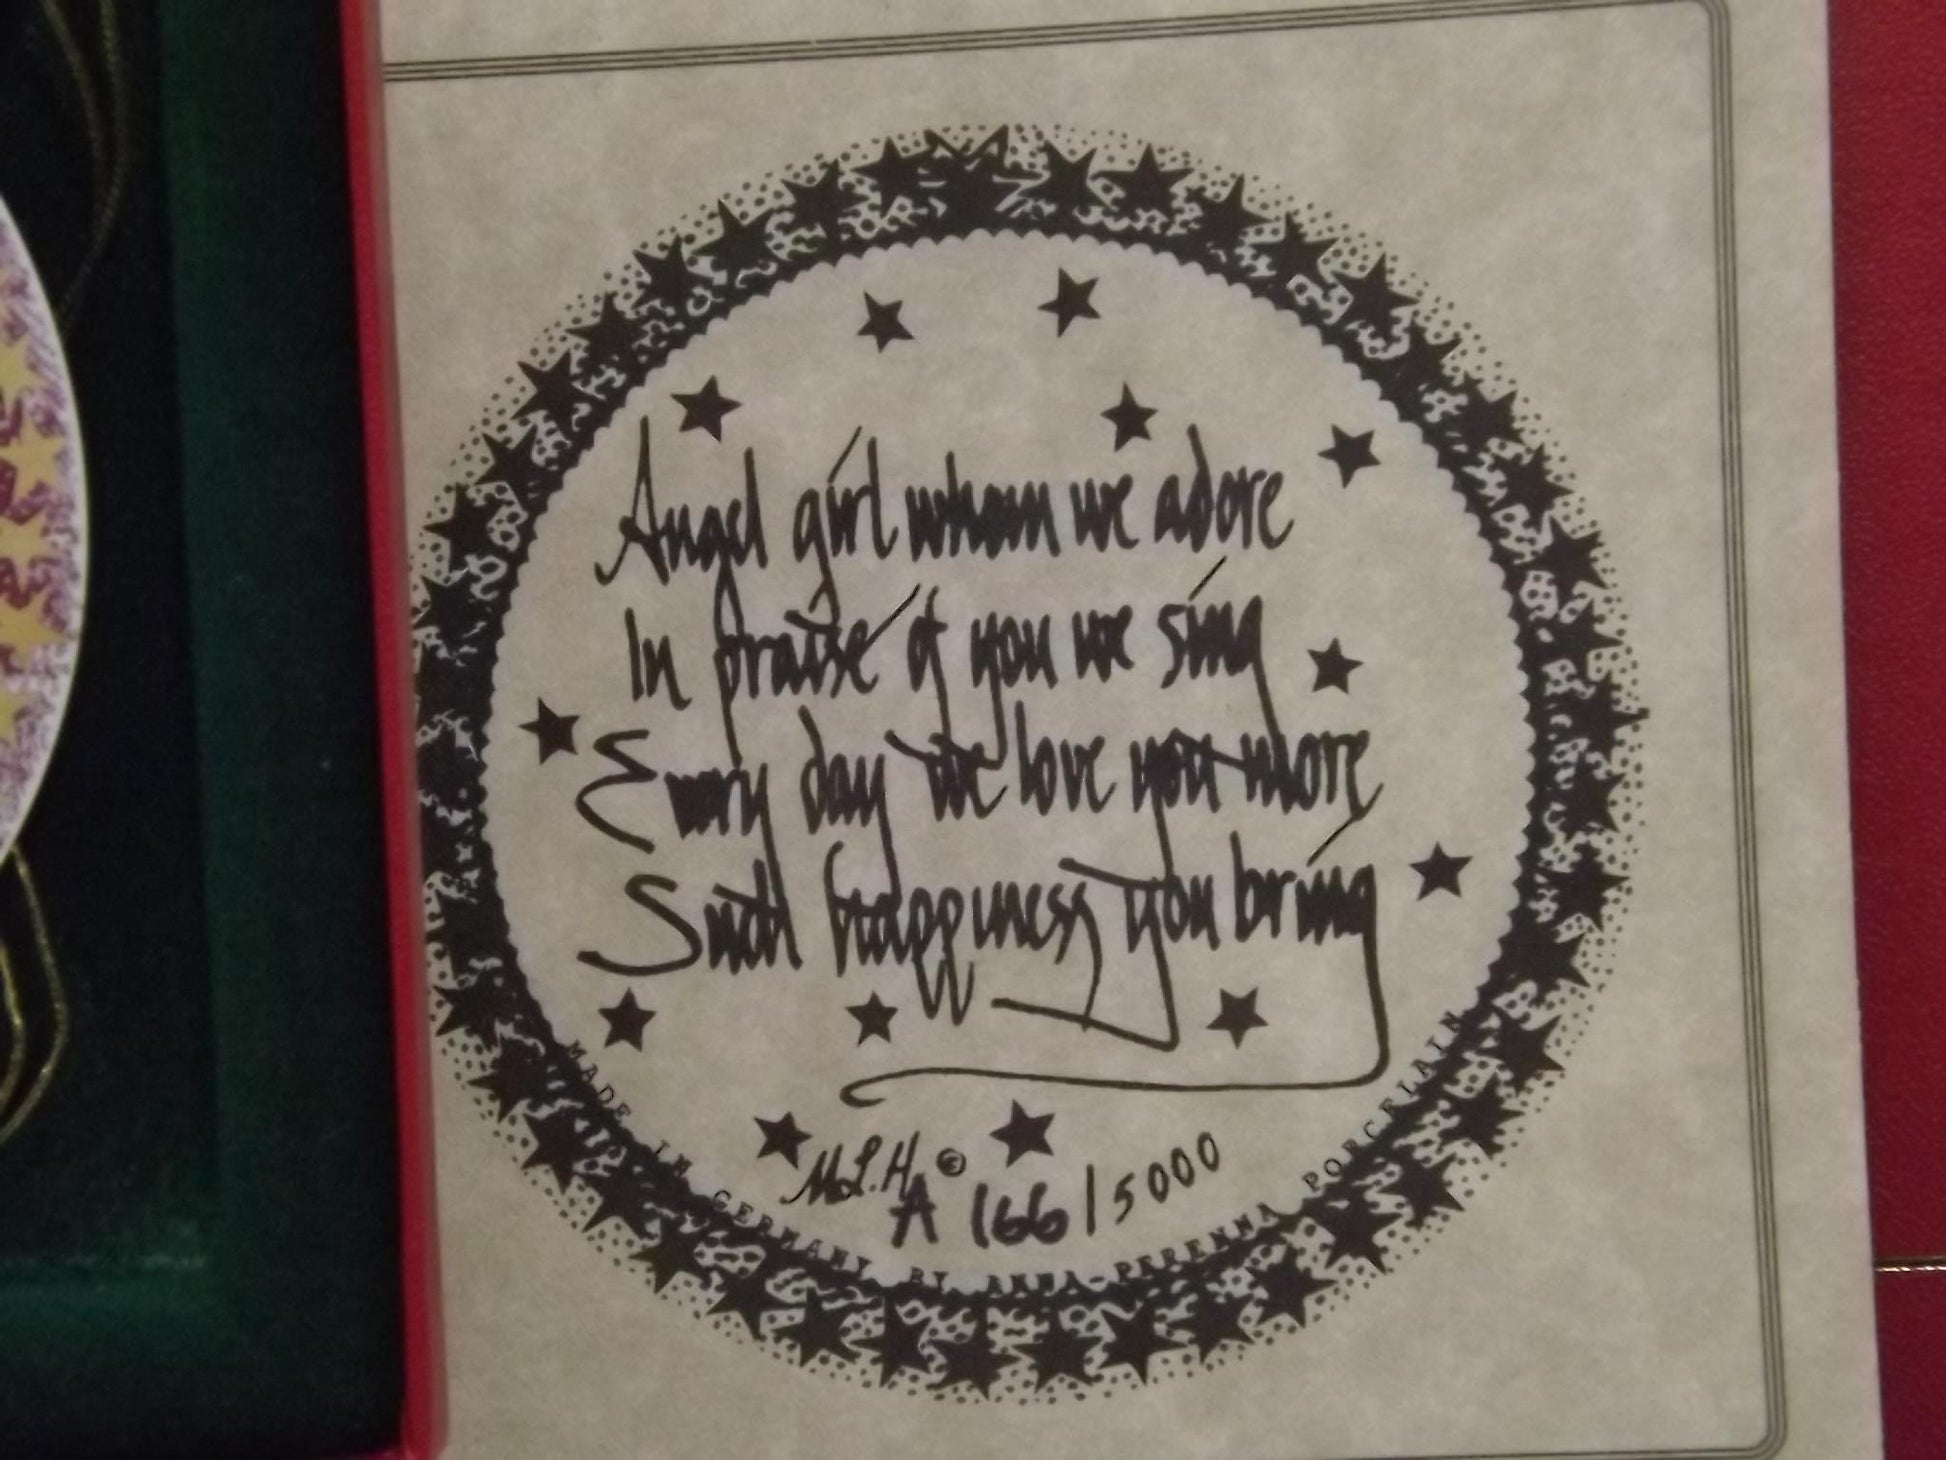 Angel girl whom we adore
In praise of you we sing
Every day we love you more
Such happiness you bring
M.L.H. ©
A 166/5000
MADE IN GERMANY BY ANNA-PERENNA PORCELAIN